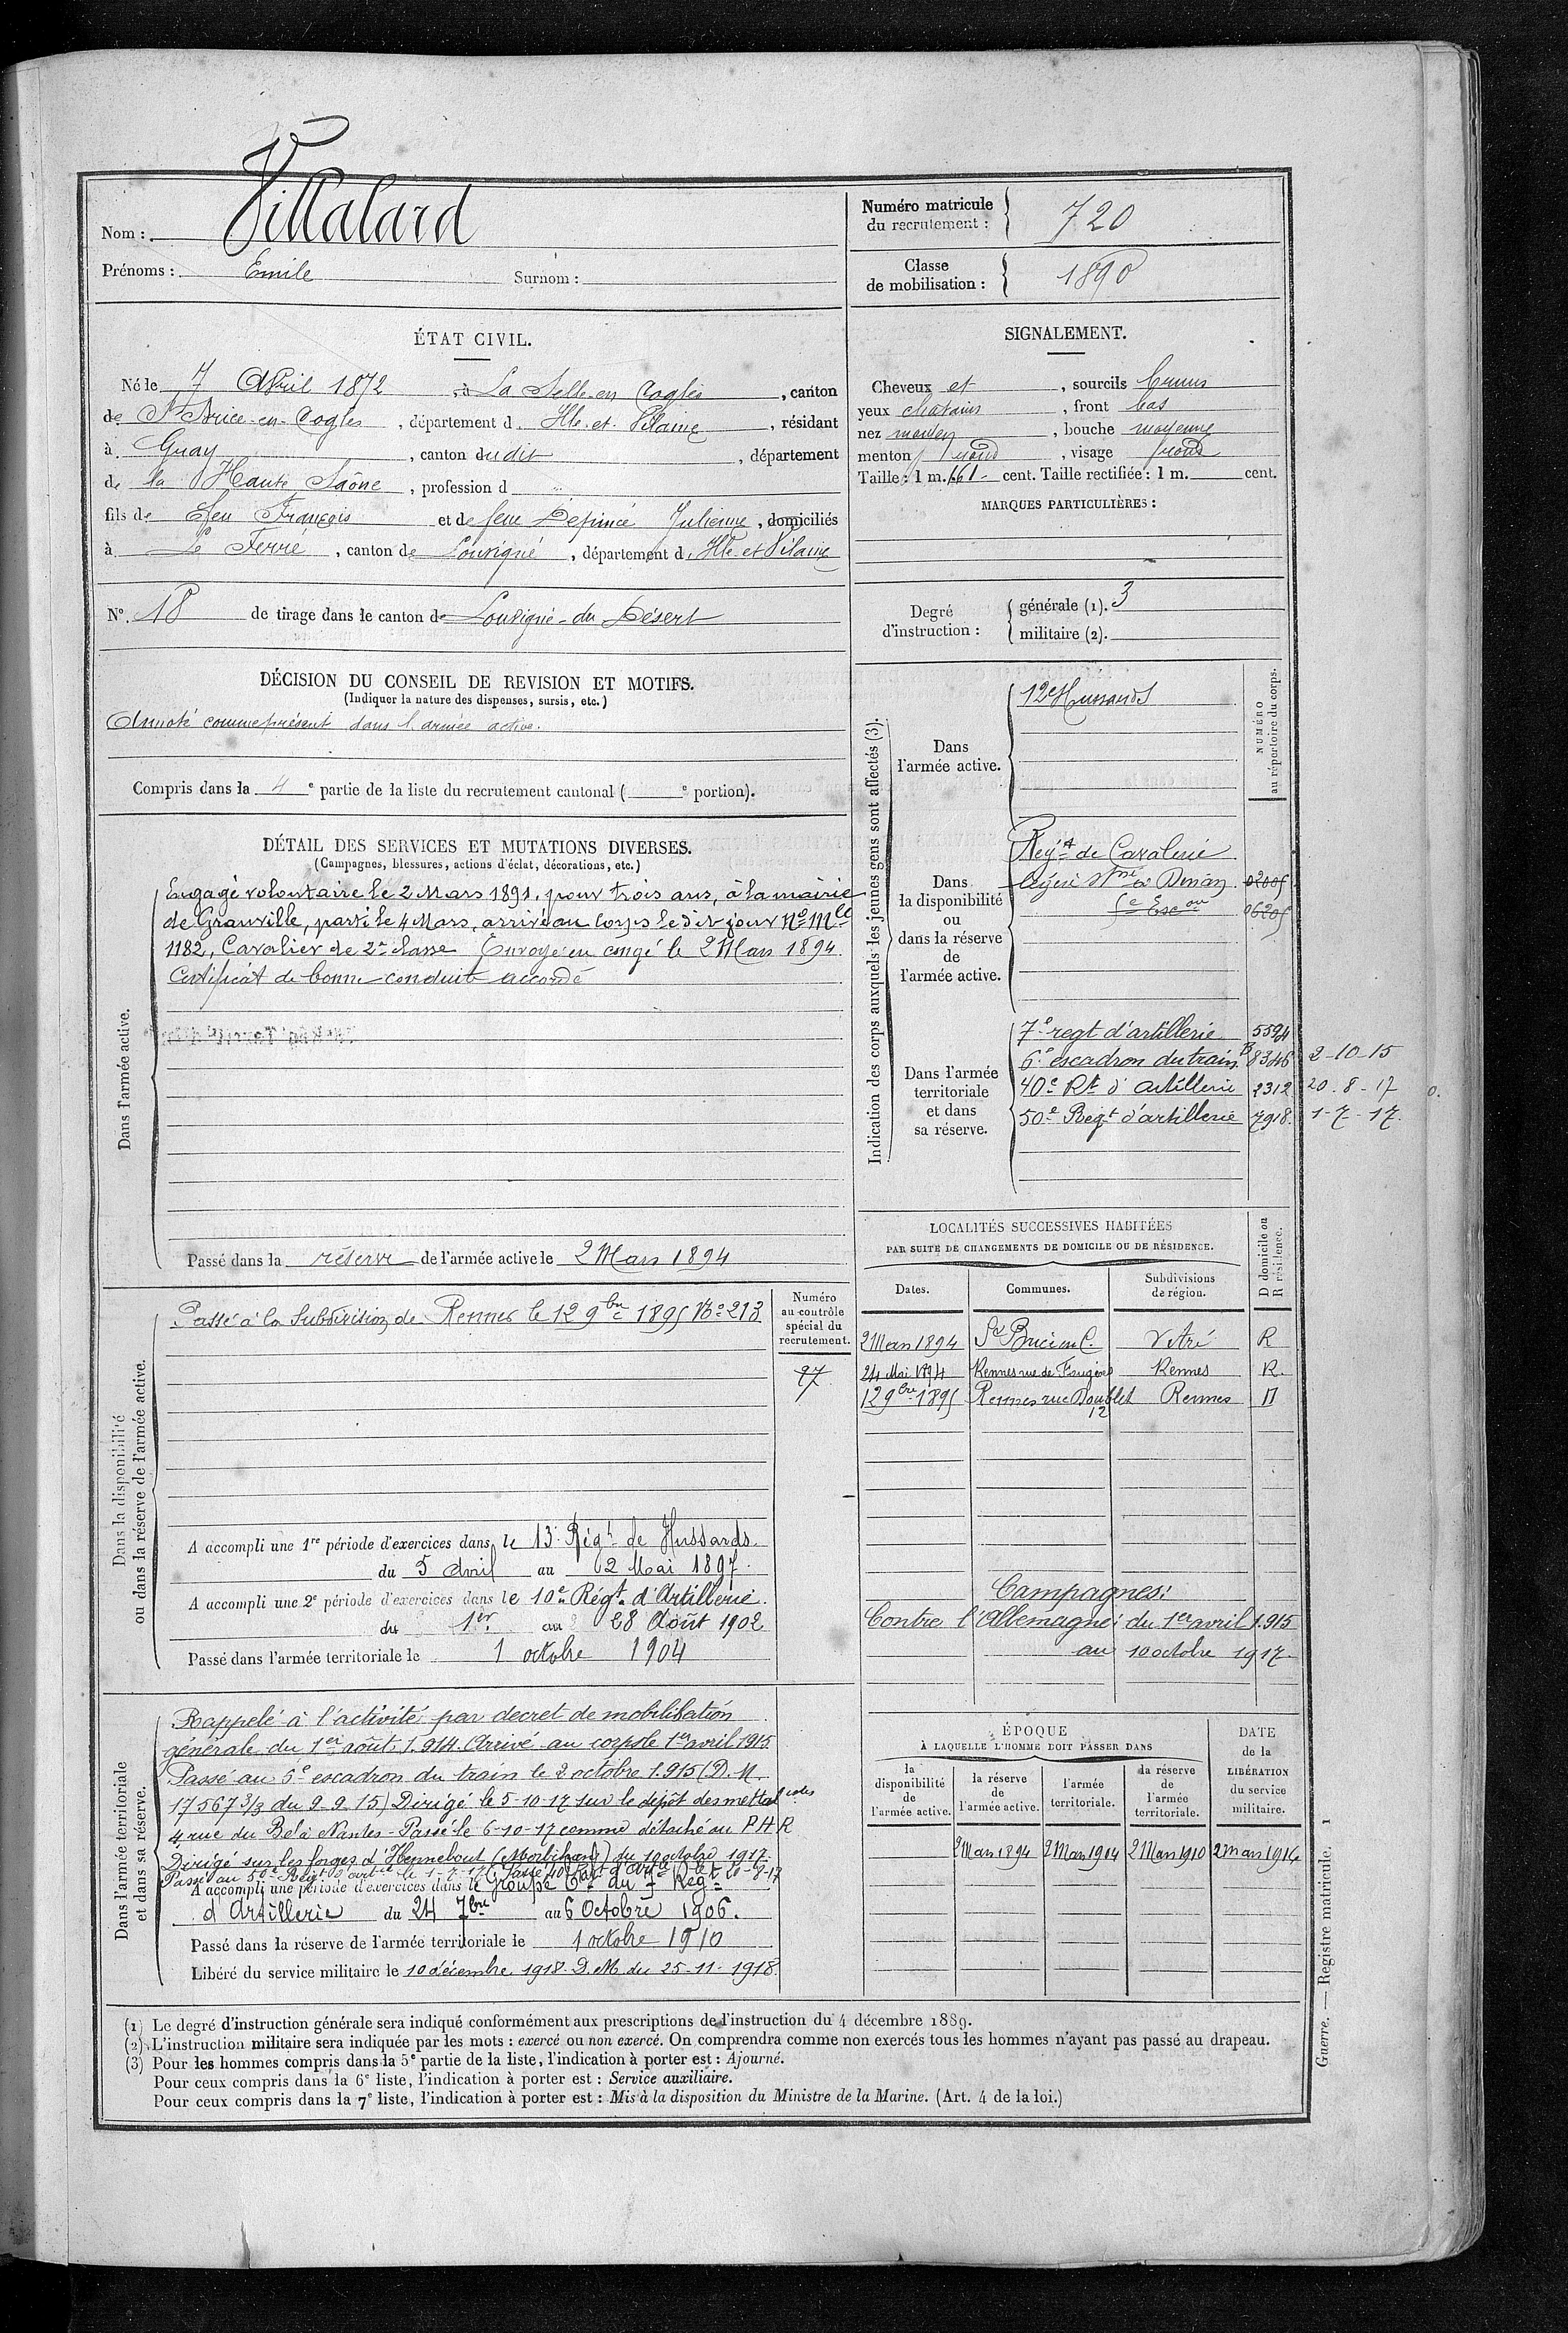 Nom : Villalard
Prénoms : Emile Surnom :
Numéro matricule du recrutement : 720
Classe de mobilisation : 1890
ÉTAT CIVIL.
Né le 7 Avril 1872 à La Selle-en-Coglès, canton
de St Brice-en-Coglès, département d. Ille-et-Vilaine, résidant
à Gray, canton dudit, département
de la Haute Saône, profession d
fils de feu François et de feue Dépincé Julienne, domiciliés
à Le Ferré, canton de Louvigné, département d. Ille et Vilaine
N° 18 de tirage dans le canton de Louvigné-du-Désert
SIGNALEMENT.
Cheveux et, sourcils bruns
yeux chatains, front bas
nez moyen, bouche moyenne
menton rond, visage rond
Taille : 1 m. 661 cent. Taille rectifiée : 1 m. cent.
MARQUES PARTICULIÈRES :
Degré d'instruction : générale (1). 3
militaire (2).
DÉCISION DU CONSEIL DE REVISION ET MOTIFS.
(Indiquer la nature des dispenses, sursis, etc.)
Annoté comme présent dans l'armée active.
Compris dans la 4e partie de la liste du recrutement cantonal ( e portion).
DÉTAIL DES SERVICES ET MUTATIONS DIVERSES.
(Campagnes, blessures, actions d'éclat, décorations, etc.)
Dans l'armée active.
Engagé volontaire le 2 Mars 1891, pour trois ans, à la mairie
de Granville, parti le 4 Mars, arrivé au corps le dit jour No Mle
1182, Cavalier de 2e classe Envoyé en congé le 2 Mars 1894.
Certificat de bonne conduite accordé
Passé dans la réserve de l'armée active le 2 Mars 1894
Indication des corps auxquels les jeunes gens sont affectés (3).
NUMÉRO au répertoire du corps.
Dans l'armée active.
12e Hussards
Dans la disponibilité ou dans la réserve de l'armée active.
Regt de Cavalerie
légère de Dinan
6e Escon
Dans l'armée territoriale et dans sa réserve.
7e regt d'artillerie 5594
6e escadron du train B 8346 2-10-15
40e Rt d'artillerie 2312 20-8-17
50e Regt d'artillerie 7918. 1-7-17.
LOCALITÉS SUCCESSIVES HABITÉES
PAR SUITE DE CHANGEMENTS DE DOMICILE OU DE RÉSIDENCE.
D domicile ou R résidence.
Dates. Communes. Subdivisions de région.
2 Mars 1894 St Brice en C. Vitré R
24 Mai 1894 Rennes rue de Fougères Rennes R.
12 9bre 1895 Rennes rue Doublet 12 Rennes D
Campagnes :
Contre l'Allemagne : du 1er avril 1.915
au 10 octobre 1917.
Dans la disponibilité ou dans la réserve de l'armée active.
Numéro au contrôle spécial du recrutement.
97
Passé à la Subdivision de Rennes le 12 9bre 1895 No 213
A accompli une 1re période d'exercices dans le 13e Régt de Hussards.
du 5 Avril au 2 Mai 1897.
A accompli une 2e période d'exercices dans le 10e Régt d'Artillerie.
du 1er au 28 Août 1902
Passé dans l'armée territoriale le 1 octobre 1904
Dans l'armée territoriale et dans sa réserve.
Rappelé à l'activité par decret de mobilisation
générale du 1er août 1.914. Arrivé au corps le 1er avril 1915
Passé au 6e escadron du train le 2 octobre 1.915 (D.M.
17567 3/3 du 9-9-15) Dirigé le 5-10-17 sur le dépôt des métal
4 rue du Bel à Nantes - Passé le 6-10-17 comme détaché au P H R
Dirigé sur les forges d'Hennebont (Morbihan) du 10 octobre 1917.
Passé au 50e Regt d'artie le 1-7-17 Passé 40e Regt d'artie le 20-8-17
A accompli une période d'exercices dans le Groupe du 7e Régt
d'Artillerie du 24 7bre au 6 Octobre 1906.
Passé dans la réserve de l'armée territoriale le 1 octobre 1910
Libéré du service militaire le 10 décembre 1918. D.M. du 25-11-1918.
ÉPOQUE
À LAQUELLE L'HOMME DOIT PASSER DANS
la disponibilité de l'armée active. la réserve de l'armée active. l'armée territoriale. la réserve de l'armée territoriale. DATE de la LIBÉRATION du service militaire.
2 Mars 1894 2 Mars 1904 2 Mars 1910 2 mars 1916
(1) Le degré d'instruction générale sera indiqué conformément aux prescriptions de l'instruction du 4 décembre 1889.
(2) L'instruction militaire sera indiquée par les mots : exercé ou non exercé. On comprendra comme non exercés tous les hommes n'ayant pas passé au drapeau.
(3) Pour les hommes compris dans la 5e partie de la liste, l'indication à porter est : Ajourné.
Pour ceux compris dans la 6e liste, l'indication à porter est : Service auxiliaire.
Pour ceux compris dans la 7e liste, l'indication à porter est : Mis à la disposition du Ministre de la Marine. (Art. 4 de la loi.)
Guerre. — Registre matricule. 1